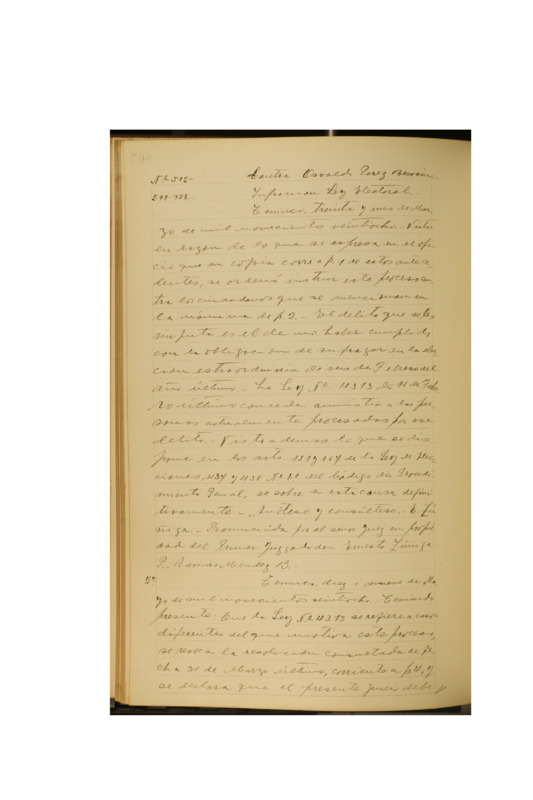 Nº 512-
Contra Osvaldo Perez
Infraccion Ley Electoral.
Temuco, treinta y uno de Mar
zo de mil novecientos veintiocho. Vistos
en razon de lo que se espresa en el ofi-
cio que en copia corre a f. 1 de estos antece
dentes, se ordenó instruir este proceso con
tra los ciudadanos que se mencionan en
la nómina de f 2. - El delito que se les
imputa es el de no haber cumplido
con la obligacion de sufragar en la elec
cion estraordinaria de seis de Febrero del
año último. - La Ley Nº 4313 de de Febre
ro último concede amnistia a las per-
sonas actualmente procesadas por ese
delito. - Visto ademas lo que se dis-
pone en los arts. de la Ley de Elec
ciones, 437 y 438 Nº del Código de Procedi
miento Penal, se sobresee en esta causa defini
tivamente. - Anótese y consúltese. - E. Zú
ñiga. - Pronunciada por el señor Juez en propie
dad del Primer Juzgado don Ernesto Zúñiga.
P. Ramón Mendez B. -
2ª Temuco, diez i nueve de
de mil novecientos veintiocho. Teniendo
presente: Que la Ley Nº 4313 se refiere a casos
diferentes del que motiva este proceso,
se revoca la resolucion consultada de fe
cha 31 de Marzo último, corriente a f 4, y
se declara que el presente juicio debe